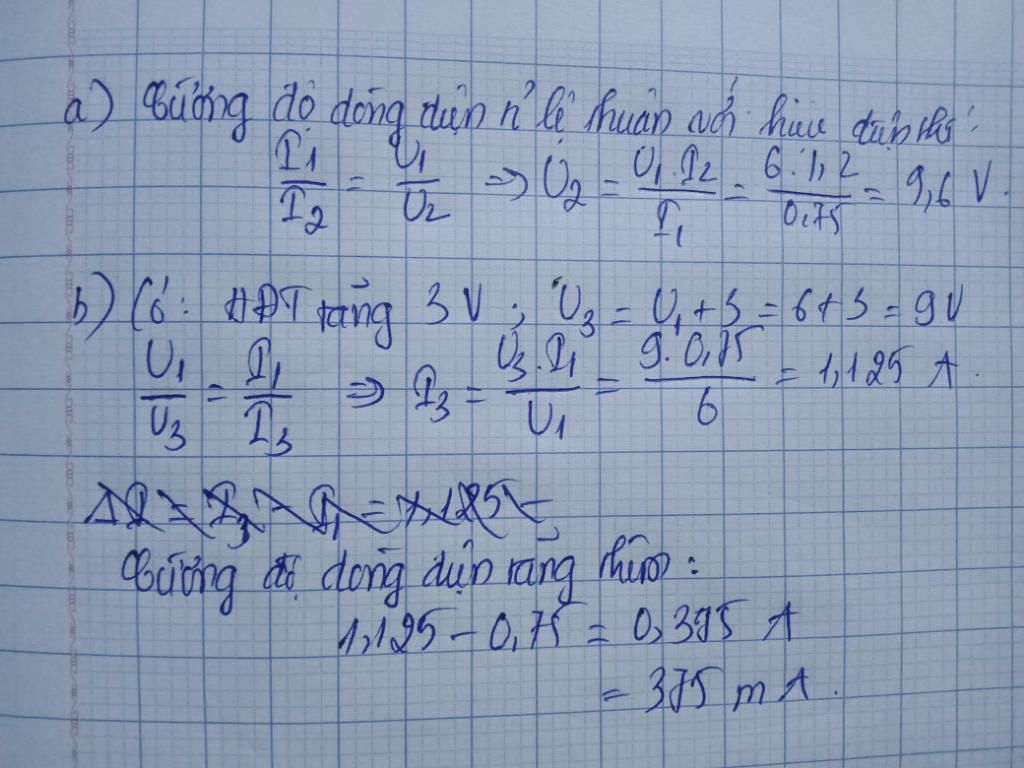 a) Cường độ dòng điện tỉ lệ thuận với hiệu điện thế:
I1/I2 = U1/U2 => U2 = U1.I2/I1 = 6.1,2/0,75 = 9,6 V.
b) Có: HĐT tăng 3 V; U3 = U1 + 3 = 6 + 3 = 9V
U1/U3 = I1/I3 => I3 = U3.I1/U1 = 9.0,75/6 = 1,125 A.
ΔI = I3 - I1 = 1,125 -
Cường độ dòng điện tăng thêm:
1,125 - 0,75 = 0,375 A
= 375 mA.